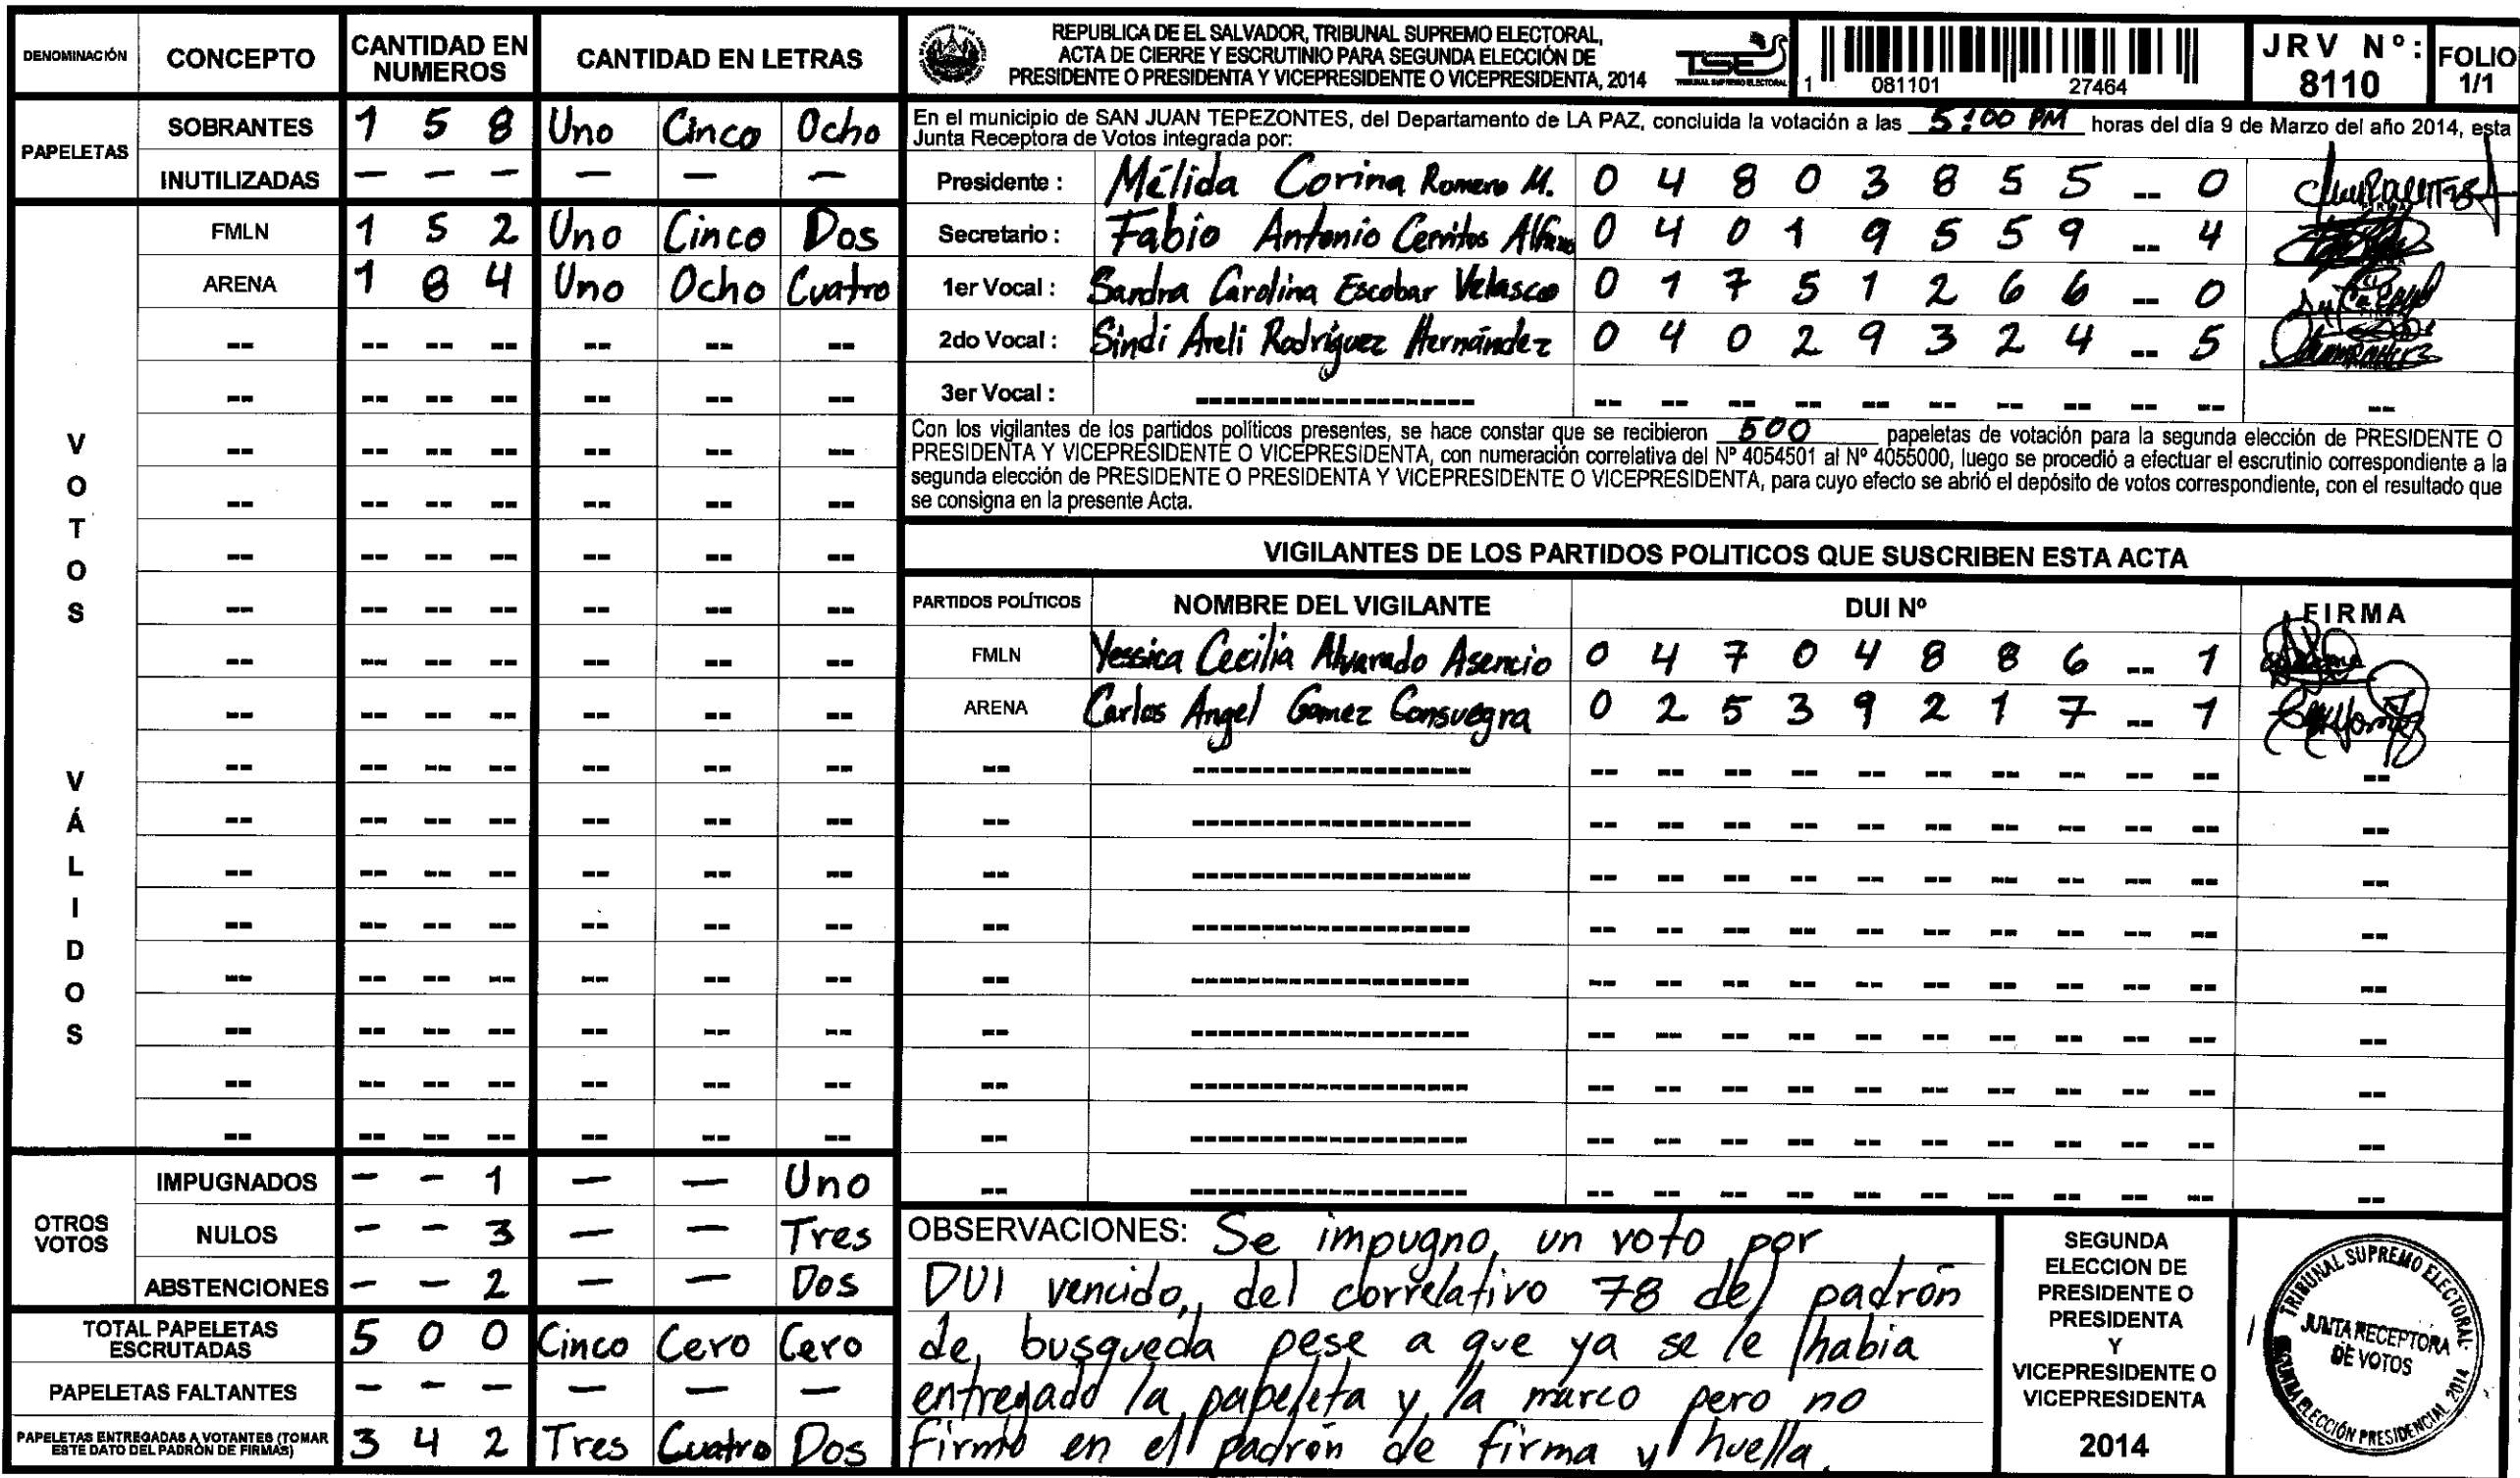 DENOMINACIÓN CONCEPTO CANTIDAD EN NUMEROS CANTIDAD EN LETRAS
PAPELETAS
SOBRANTES 1 5 8 Uno Cinco Ocho
INUTILIZADAS — — — — — —
VOTOS VÁLIDOS
FMLN 1 5 2 Uno Cinco Dos
ARENA 1 8 4 Uno Ocho Cuatro
OTROS VOTOS
IMPUGNADOS — — 1 — — Uno
NULOS — — 3 — — Tres
ABSTENCIONES — — 2 — — Dos
TOTAL PAPELETAS ESCRUTADAS 5 0 0 Cinco Cero Cero
PAPELETAS FALTANTES — — — — — —
PAPELETAS ENTREGADAS A VOTANTES (TOMAR ESTE DATO DEL PADRÓN DE FIRMAS) 3 4 2 Tres Cuatro Dos
REPUBLICA DE EL SALVADOR, TRIBUNAL SUPREMO ELECTORAL,
ACTA DE CIERRE Y ESCRUTINIO PARA SEGUNDA ELECCIÓN DE
PRESIDENTE O PRESIDENTA Y VICEPRESIDENTE O VICEPRESIDENTA, 2014
TSE
TRIBUNAL SUPREMO ELECTORAL
1 081101 27464
JRV Nº: 8110
FOLIO 1/1
En el municipio de SAN JUAN TEPEZONTES, del Departamento de LA PAZ, concluida la votación a las 5:00 PM horas del día 9 de Marzo del año 2014, esta
Junta Receptora de Votos integrada por:
Presidente : Mélida Corina Romero M. 0 4 8 0 3 8 5 5 -- 0
Secretario : Fabio Antonio Cerritos Alfaro 0 4 0 1 9 5 5 9 -- 4
1er Vocal : Sandra Carolina Escobar Velasco 0 1 7 5 1 2 6 6 -- 0
2do Vocal : Sindi Areli Rodríguez Hernández 0 4 0 2 9 3 2 4 -- 5
3er Vocal :
Con los vigilantes de los partidos políticos presentes, se hace constar que se recibieron 500 papeletas de votación para la segunda elección de PRESIDENTE O
PRESIDENTA Y VICEPRESIDENTE O VICEPRESIDENTA, con numeración correlativa del Nº 4054501 al Nº 4055000, luego se procedió a efectuar el escrutinio correspondiente a la
segunda elección de PRESIDENTE O PRESIDENTA Y VICEPRESIDENTE O VICEPRESIDENTA, para cuyo efecto se abrió el depósito de votos correspondiente, con el resultado que
se consigna en la presente Acta.
VIGILANTES DE LOS PARTIDOS POLITICOS QUE SUSCRIBEN ESTA ACTA
PARTIDOS POLÍTICOS NOMBRE DEL VIGILANTE DUI Nº FIRMA
FMLN Yessica Cecilia Alvarado Asencio 0 4 7 0 4 8 8 6 -- 1
ARENA Carlos Angel Gomez Consuegra 0 2 5 3 9 2 1 7 -- 1
OBSERVACIONES: Se impugno, un voto por
DUI vencido, del correlativo 78 del padrón
de, busqueda pese a que ya se le habia
entregado la papeleta y la marco pero no
firmó en el padrón de firma y huella.
SEGUNDA
ELECCION DE
PRESIDENTE O
PRESIDENTA
Y
VICEPRESIDENTE O
VICEPRESIDENTA
2014
TRIBUNAL SUPREMO ELECTORAL
JUNTA RECEPTORA
DE VOTOS
SEGUNDA ELECCIÓN PRESIDENCIAL 2014